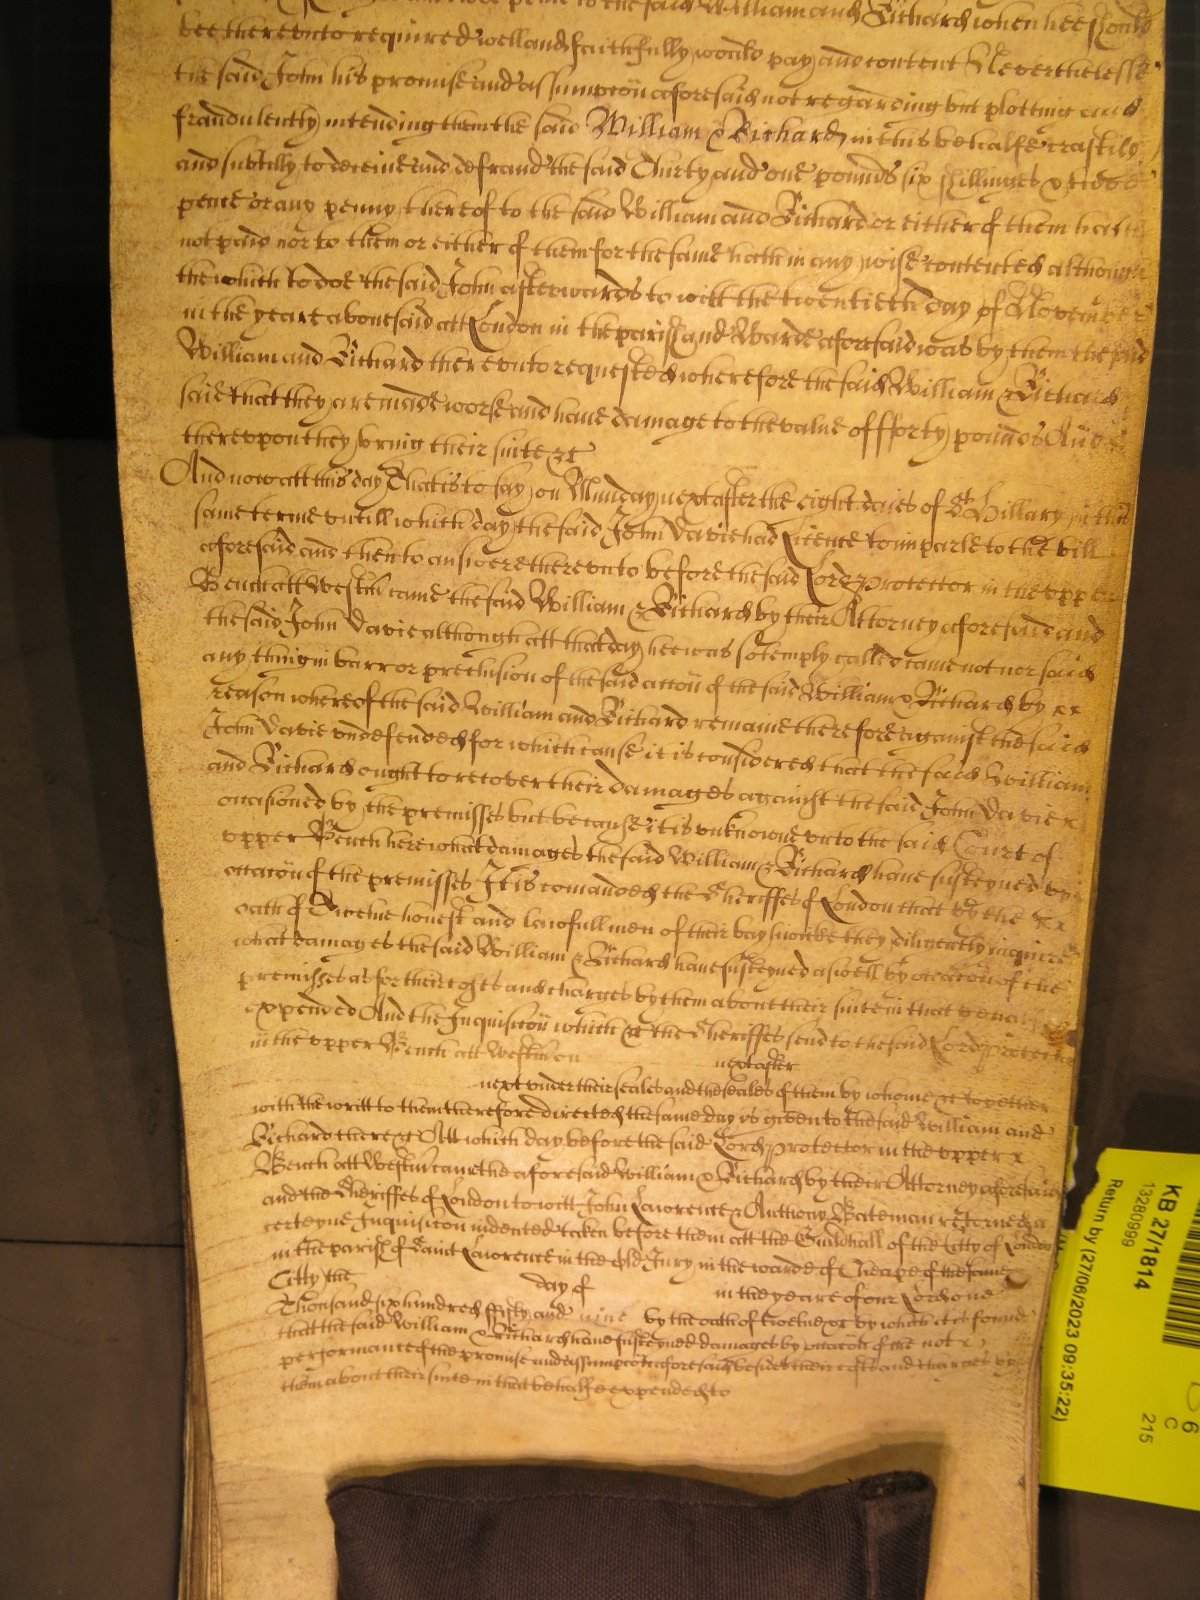 pence to the said William and Richard when hee should
bee therevnto required well and faithfully would pay and content Neverthelesse
the said John his promise and assumpcōn aforesaid not regarding but plotting and
fraudulently intending them the said William & Richard in this behalfe craftily
and subtilly to deceive and defraud the said Thirty and one pounds six shillings & two
pence or any penny thereof to the said William and Richard or either of them hath
not paid nor to them or either of them for the same hath in any wise contented although
the which to doe the said John afterwards to witt the twentieth day of November
in the yeare abovesaid att London in the parish and Warde aforesaid was by them the said
William and Richard therevnto requested wherefore the said William & Richard
said that they are made worse and have damage to the value of fforty pounds And
therevpon they bring their suite &c
And now att this day That is to say on Munday next after the eight daies of St Hillary in this
same terme vntill which day the said John Davie had Licence to imparle to the bill
aforesaid and then to answere therevnto before the said Lord Protector in the vpper
Bench att Westm̄ came the said William & Richard by their Attorney aforesaid and
the said John Davie although att that day hee was solemply called came not nor said
any thing in barr or preclusion of the said accōn of the said William & Richard by xx
reason whereof the said William and Richard remaine therefore against the said
John Davie vndefended for which cause it is considered that the said William
and Richard ought to recover their damages against the said John Davie x
occasioned by the premisses but because it is vnknowne vnto the said Court of
vpper Bench here what damages the said William & Richard have susteyned by
occacōn of the premisses It is comanded the Sheriffes of London that by the xx
oath of Twelve honest and lawfull men of their baylywicke they diligently inquire
what damages the said William & Richard have susteyned aswell by occacōn of the
premisses as for their costs and charges by them about their suite in that behalf
expended And the Inquisicōn which &c the Sheriffes send to the said Lord Protector
in the vpper Bench att Westm̄ on next after
next vnder their seales and the seales of them by whome &c together
with the writt to them therefore directed the same day is given to the said William and
Richard there &c Att which day before the said Lord Protector in the vpper x
Bench att Westm̄ came the aforesaid William & Richard by their Attorney aforesaid
and the Sheriffes of London to witt John Lawrence & Anthony Bateman retorned a
certeyne Inquisicōn indented taken before them att the Guildhall of the Citty of London
in the parish of Saint Lawrence in the Old Jury in the warde of Cheape of the same
Citty the day of in the yeare of our Lord one
Thousand six hundred ffifty and nine by the oath of twelve &c by which it is found
that the said William & Richard have susteyned damages by occacōn of the not x
performance of the promise and assumpcōn aforesaid besides their costs and charges by
them about their suite in that behalfe expended to
KB 27/1814
13280999
Return by (27/06/2023 09:35:22)
6
C
215